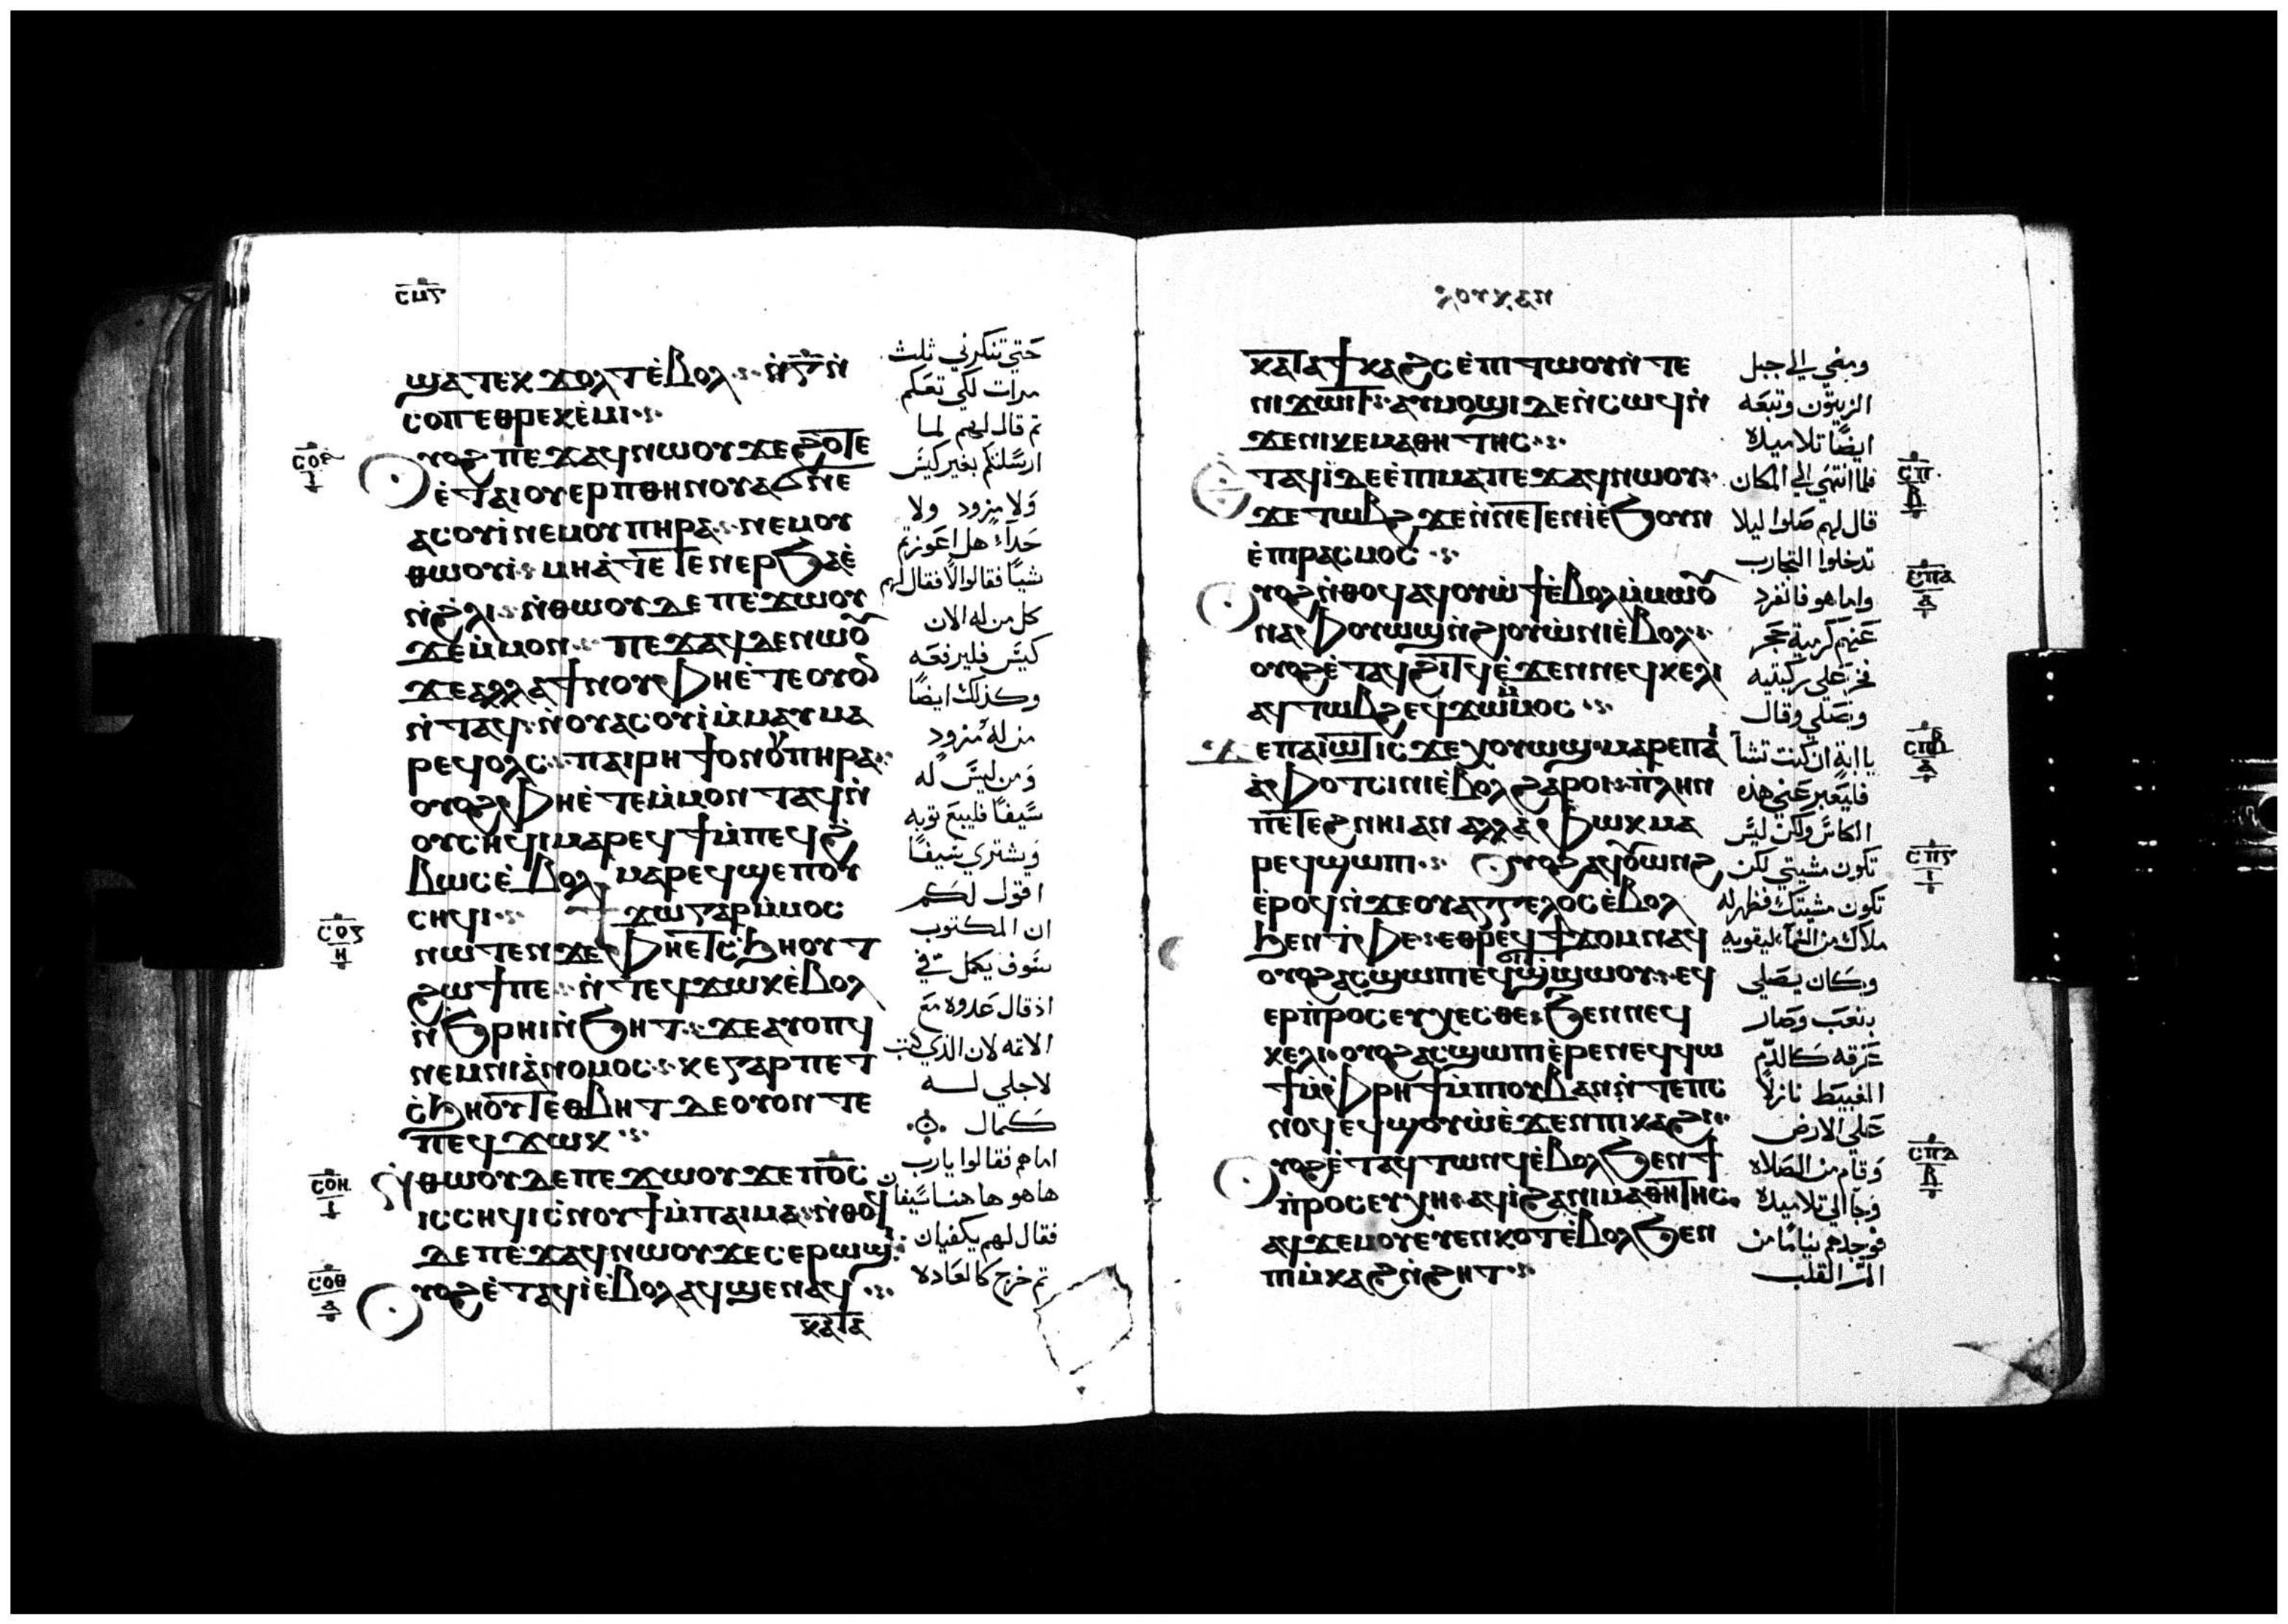 ⲥⲙⲋ
ϣⲁⲧⲉⲕϫⲟⲗⲧ ⲉ̀ⲃⲟⲗ ⲛ̀ⲅ̅ ⲛ̀
ⲥⲟⲡ ⲉⲑⲣⲉⲕⲉ̀ⲙⲓ
ⲟⲩⲟϩ ⲡⲉϫⲁϥ ⲛⲱⲟⲩ ϫⲉ ϩⲟⲧⲉ
ⲉ̀ⲧⲁⲓⲟⲩⲉⲣⲡ ⲑⲏⲛⲟⲩ ⲁϭⲛⲉ
ⲁⲥⲟⲩⲓ ⲛⲉⲙ ⲟⲩⲡⲏⲣⲁ ⲛⲉⲙ ⲟⲩ
ⲑⲱⲟⲩⲓ ⲙⲏ ⲁ̀ⲧⲉⲧⲉⲛⲉⲣϧⲁⲉ̀
ⲛ̀ϩⲗⲓ ⲛ̀ⲑⲱⲟⲩ ⲇⲉ ⲡⲉϫⲱⲟⲩ
ϫⲉ ⲙ̀ⲙⲟⲛ ⲡⲉϫⲁϥ ⲇⲉ ⲛⲱⲟⲩ
ϫⲉ ⲁⲗⲗⲁ ϯⲛⲟⲩ ⲫⲏ ⲉ̀ⲧⲉ ⲟⲩⲟ
ⲛ̀ⲧⲁϥ ⲛ̀ⲟⲩⲁⲥⲟⲩⲓ ⲙ̀ⲙⲁⲩ ⲙⲁ
ⲣⲉϥⲟⲗⲥ ⲡⲁⲓⲣⲏϯ ⲟⲛ ⲟⲩⲡⲏⲣⲁ
ⲟⲩⲟϩ ⲫⲏ ⲉ̀ⲧⲉ ⲙ̀ⲙⲟⲛⲧⲁϥ ⲛ̀
ⲟⲩⲥⲏϥⲓ ⲙⲁⲣⲉϥϯ ⲙ̀ⲡⲉϥϩ
ⲃⲱⲥ ⲉ̀ⲃⲟⲗ ⲙⲁⲣⲉϥϣⲉⲡ ⲟⲩ
ⲥⲏϥⲓ ϯϫⲱ ⲅⲁⲣ ⲙ̀ⲙⲟⲥ
ⲛⲱⲧⲉⲛ ϫⲉ ⲫⲏ ⲉⲧⲥϧⲏⲟⲩⲧ
ϩⲱϯ ⲡⲉ ⲛ̀ⲧⲉϥϫⲱⲕ ⲉ̀ⲃⲟⲗ
ⲛ̀ϧⲣⲏⲓ ⲛ̀ϧⲏⲧ ϫⲉ ⲁⲩⲟⲡϥ
ⲛⲉⲙ ⲛⲓⲁ̀ⲛⲟⲙⲟⲥ ⲕⲉ ⲅⲁⲣ ⲡⲉⲧ
ⲥ̀ϧⲏⲟⲩⲧ ⲉⲑⲃⲏⲧ ⲇⲉ ⲟⲩⲟⲛⲧⲉ
ⲡⲉϥϫⲱⲕ
ⲛⲑⲱⲟⲩ ⲇⲉ ⲡⲉϫⲱⲟⲩ ϫⲉ ⲡϭⲟⲓⲥ
ⲓⲥ ⲥⲏϥⲓ ⲥ̀ⲛⲟⲩϯ ⲙ̀ⲡⲁⲓⲙⲁ ⲛ̀ⲑⲟϥ
ⲇⲉ ⲡⲉϫⲁϥ ⲛⲱⲟⲩ ϫⲉ ⲥⲉⲣⲱϣⲓ
ⲟⲩⲟϩ ⲉ̀ⲧⲁϥⲓ̀ ⲉ̀ⲃⲟⲗ ⲁϥϣⲉⲛⲁϥ
ⲕⲁⲧⲁ
حتي تنكرني ثلث
مرات لكي تعكم
ثم قال لهم لما
ارسلتكم بغير كيس
ولا مزود ولا
حذآء هل اعوزتم
شيا فقالوا لا فقال لهم
كل من له الان
كيس فليرفعه
وكذلك ايضا
من له مزود
ومن ليس له
سيفا فليبع ثوبه
ويشتري سيفا
اقول لكم
ان المكتوب
سوف يكمل في
اذ قال عدوه مع
الاثمه لان الذي كتب
لاجلي له
كمال
اماهم فقالوا يارب
هاهوها هنا سيفان
فقال لهم يكفيان
ثم خرج كالعاده
ⲥⲟⲋ
ⲥⲟⲍ
ⲏ
ⲥⲟⲏ
ⲓ
ⲥⲟⲑ
ⲁ
ⲗⲟⲩⲕⲁⲛ
ⲕⲁⲧⲁ ϯⲕⲁϩⲥ ⲉ̀ⲡⲓⲧⲱⲟⲩ ⲛ̀ⲧⲉ
ⲛⲓϫⲱⲓⲧ ⲁⲩⲙⲟϣⲓ ⲇⲉ ⲛ̀ⲥⲱϥ ⲛ̀
ϫⲉ ⲛⲓⲕⲉⲙⲁⲑⲏⲧⲏⲥ
ⲧⲁϥⲓ̀ ⲇⲉ ⲉ̀ⲡⲓⲙⲁ ⲡⲉϫⲁϥ ⲛⲱⲟⲩ
ϫⲉ ⲧⲱⲃϩ ϫⲉ ⲛ̀ⲛⲉⲧⲉⲛⲓ̀ ⲉ̀ϧⲟⲩⲛ
ⲉ̀ⲡⲓⲣⲁⲥⲙⲟⲥ
ⲟⲩⲟϩ ⲛ̀ⲑⲟϥ ⲁϥⲟⲩⲱϯ ⲉ̀ⲃⲟⲗ ⲙ̀ⲙⲱⲟⲩ
ⲛⲁⲫⲟⲩⲱϣ ⲛ̀ϩⲓⲟⲩⲱ̀ⲛⲓ ⲉ̀ⲃⲟⲗ
ⲟⲩⲟϩ ⲉ̀ⲧⲁϥϩⲓⲧϥ ⲉ̀ϫⲉⲛ ⲛⲉϥⲕⲉⲗⲓ
ⲁϥⲧⲱⲃϩ ⲉϥϫⲱ ⲙ̀ⲙⲟⲥ
ϫⲉ ⲡⲁⲓⲱⲧ ⲓⲥϫⲉ ⲭⲟⲩⲱϣ ⲙⲁⲣⲉ ⲡⲁⲓ
ⲁ̀ⲫⲟⲧ ⲥⲓⲛⲓ ⲉ̀ⲃⲟⲗ ϩⲁⲣⲟⲓ ⲡ̀ⲗⲏⲛ
ⲡⲉⲧⲉϩⲛⲏⲓ ⲁⲛ ⲁⲗⲗⲁ ⲫⲱⲕ ⲙⲁ
ⲣⲉϥϣⲱⲡⲓ ⲟⲩⲟϩ ⲁϥⲟⲩⲱⲛϩ
ⲉ̀ⲣⲟϥ ⲛ̀ϫⲉ ⲟⲩⲁⲅⲅⲉⲗⲟⲥ ⲉ̀ⲃⲟⲗ
ϧⲉⲛ ⲧ̀ⲫⲉ ⲉⲑⲣⲉϥϯϫⲟⲙ ⲛⲁϥ
ⲟⲩⲟϩ ⲁⲥϣⲱⲡⲓ ⲉϥϣⲓϣⲱⲟⲩ ⲉϥ
ⲉⲣⲡ̀ⲣⲟⲥⲉⲩⲭⲉⲥⲑⲉ ϧⲉⲛ ⲛⲉϥ
ⲕⲉⲗⲓ ⲟⲩⲟϩ ⲁⲥϣⲱⲡⲓ ⲉ̀ⲣⲉ ⲛⲉϥϥⲱ
ϯ ⲙ̀ⲫⲣⲏϯ ⲙ̀ⲡⲟⲩⲃⲁⲛ ⲛ̀ⲧⲉ ⲡⲥ
ⲛⲟϥ ⲉϥϣⲟⲩⲱ̀ ⲉ̀ϫⲉⲛ ⲡⲓⲕⲁϩⲓ
ⲟⲩⲟϩ ⲉ̀ⲧⲁϥⲧⲱⲛϥ ⲉ̀ⲃⲟⲗ ϧⲉⲛ ϯ
ⲡ̀ⲣⲟⲥⲉⲩⲭⲏ ⲁϥⲓ̀ ϩⲁ ⲛⲓⲙⲁⲑⲏⲧⲏⲥ
ⲁϥϫⲉⲙⲟⲩ ⲉⲩⲉⲛⲕⲟⲧ ⲉ̀ⲃⲟⲗ ϧⲉⲛ
ⲡⲓⲙ̀ⲕⲁϩ ⲛ̀ϩⲏⲧ
ومضي الي جبل
الزيتون وتبعه
ايضا تلاميذه
فلما انتهي الي المكان
قال لهم صلوا ليلا
تدخلوا التجارب
واما هو فانفرد
عنهم كرمية حجر
فخر علي ركبتيه
وصلي وقال
يا ابة ان كنت تشآ
فليعبر عني هذه
الكاس ولكن ليس
تكون مشيتي لكن
تكون مشيتك فظهر له
ملاك من السمآء ليقويه
وكان يصلي
بتعب وصار
عرقه كالدم
الغبيط نازلا
علي الارض
وقام من الصلاه
وجا الي تلاميذه
فوجدهم نياما من
القلب
ⲥⲡ
ⲃ
ⲥⲡⲁ
ⲁ
ⲥⲡⲃ
ⲁ
ⲥⲡⲅ
ⲓ
ⲥⲡⲇ
ⲃ